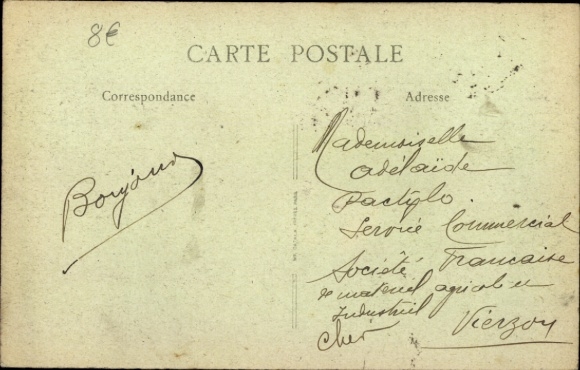 8€
CARTE POSTALE
Correspondance
Adresse
Bonjour
Mademoiselle
Adélaïde
Dactylo.
Service Commercial
Société Francaise
de materiel agricole et
Industriel
Vierzon
Cher